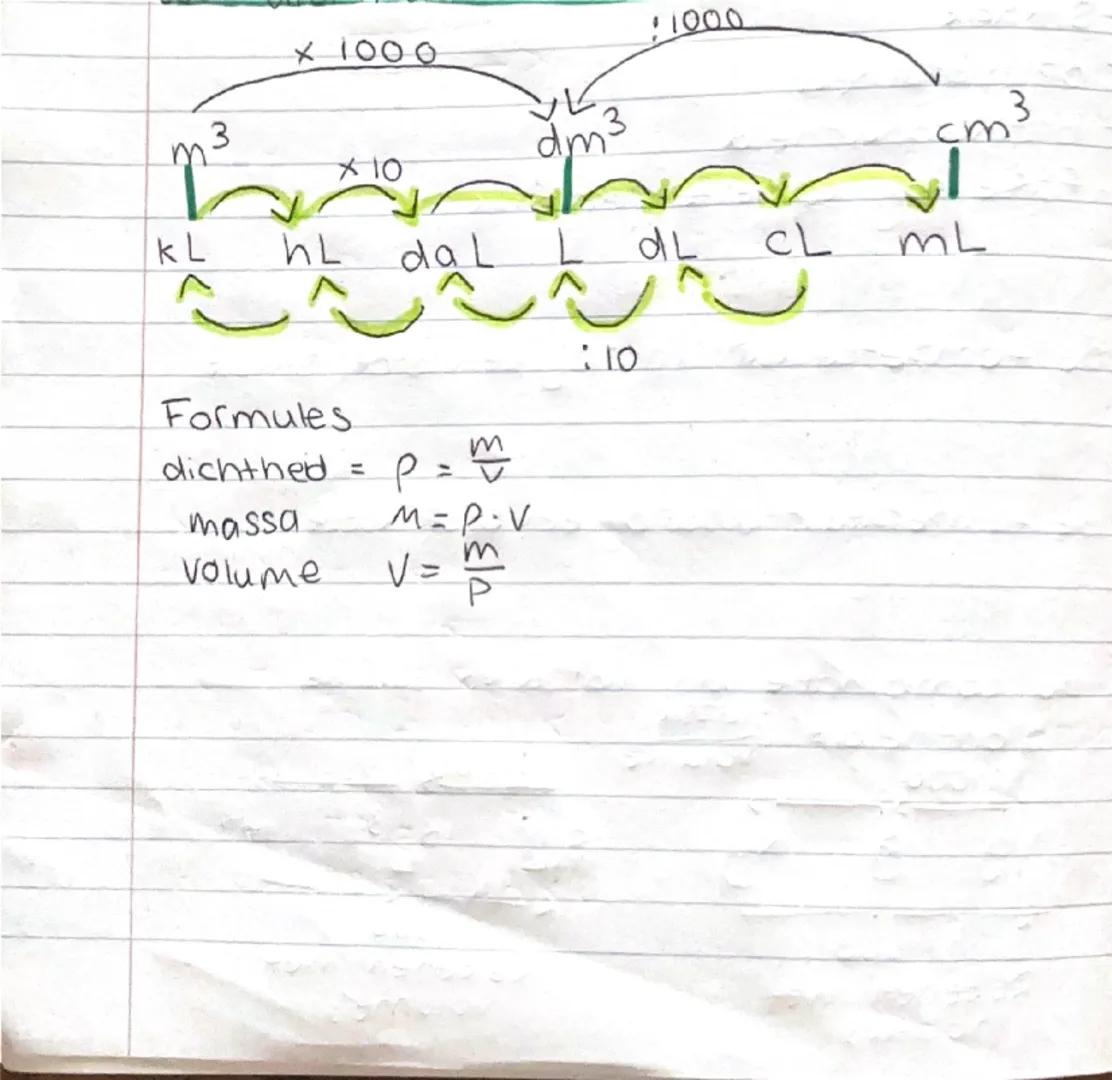 x 1000 :1000
m³ dm³ cm³
x 10
kL hL daL L dL cL mL
:10
Formules
dichthed = ρ = m/v
massa M = ρ · V
volume V = m/ρ